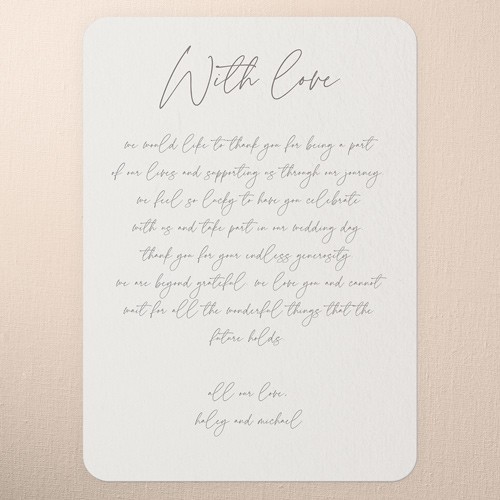 With love
we would like to thank you for being a part
of our lives and supporting us through our journey.
we feel so lucky to have you celebrate
with us and take part in our wedding day.
thank you for your endless generosity.
we are beyond grateful. we love you and cannot
wait for all the wonderful things that the
future holds.
all our love,
haley and michael